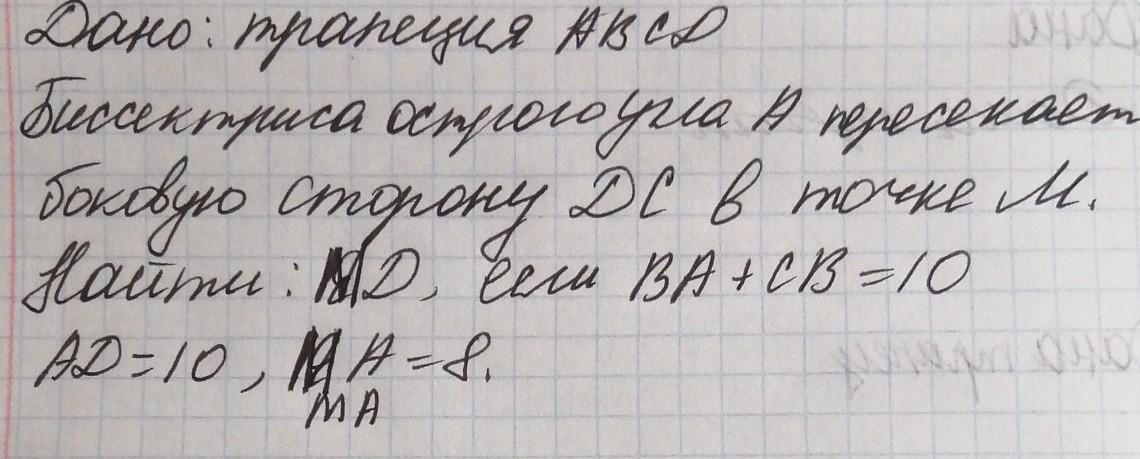 Дано: трапеция ABCD
Биссектриса острого угла A пересекает
боковую сторону DC в точке M.
Найти: MD, если BA + CB = 10
AD = 10, MA = 8.
MA